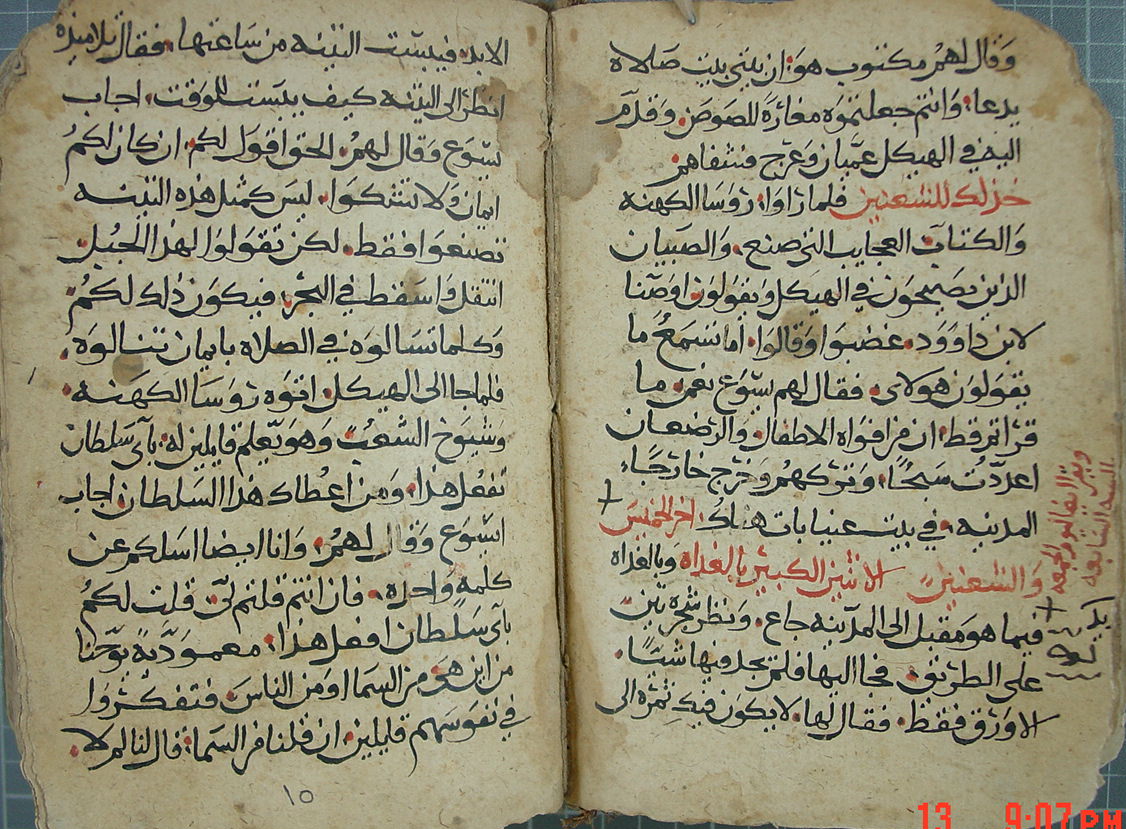 وقال لهم مكتوب هو، ان بيتي بيت صلاه
يدعا، وانتم جعلتموه مغارة للصوص، وقدم
اليه في الهيكل عميان وعرج فشفاهم
خذ لك للشعنين فلما راوا روسا الكهنه
والكتاب العجايب التي صنع، والصبيان
الذين يصيحون في الهيكل ويقولون اوصنا
لابن داوود، غضبوا وقالوا، اما تسمع ما
يقولون هولاى، فقال لهم يسوع نعم، ما
قراتم قط، ان من افواه الاطفال والرضعان
اعددت سبحا، وتركهم وخرج خارجا،
المدينه، في بيت عنيا بات هناك، اخر الخميس
والشعنين الاثنين الكبير بالغداه وبالغداه
فيما هو مقبل الى المدينه جاع، ونظر شجرة تين
على الطريق، فجا اليها فلم يجد فيها شيا،
الا ورق فقط، فقال لها، لا يكون فيك ثمره الى
الابد، فيبست التينه من ساعتها، فقال تلاميذه
انظر الى التينه كيف يبست للوقت، اجاب
يسوع وقال لهم، الحق اقول لكم، ان كان لكم
ايمان ولا تشكوا، ليس كمثل هذه التينه
تصنعوا فقط، لكن تقولوا لهذا الجبل
انتقل واسقط في البحر، فيكون ذلك لكم،
وكلما تسالوه في الصلاه بايمان تنالوه،
فلما جا الى الهيكل، اتوه روسا الكهنه،
وشيوخ الشعب وهو يعلم قايلين له، باي سلطان
تفعل هذا، ومن اعطاك هذا السلطان، اجاب
ايسوع وقال لهم، وانا ايضا اسلكم عن
كلمه واحده، فان انتم قلتم لي، قلت لكم
باي سلطان افعل هذا، معموديه يوحنا
من اين هو، من السما او من الناس، فتفكروا
في نفوسهم قايلين، ان قلنا من السما، قال لنا لم لا،
١٥
13 9:07 PM